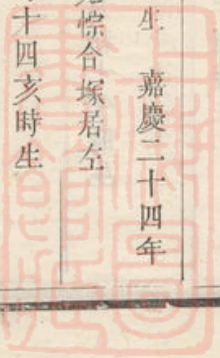 生 嘉慶二十四年
惊合塚居左
十四亥時生